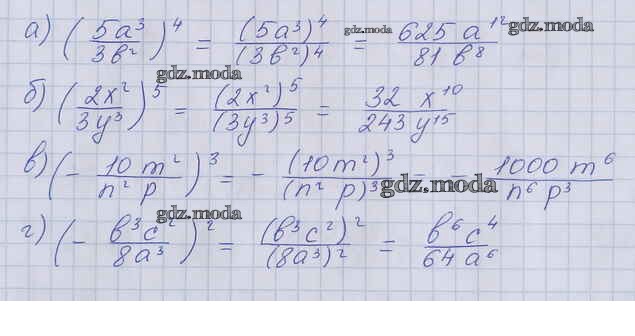 а) (5a³/3b²)⁴ = (5a³)⁴/(3b²)⁴ = 625 a¹²/81 b⁸
gdz.moda
gdz.moda
б) (2x²/3y³)⁵ = (2x²)⁵/(3y³)⁵ = 32 x¹⁰/243 y¹⁵
gdz.moda
в) (- 10 m²/n² p)³ = - (10m²)³/(n² p)³ = - 1000 m⁶/n⁶ p³
gdz.moda
gdz.moda
г) (- b³c²/8a³)² = (b³c²)²/(8a³)² = b⁶c⁴/64 a⁶